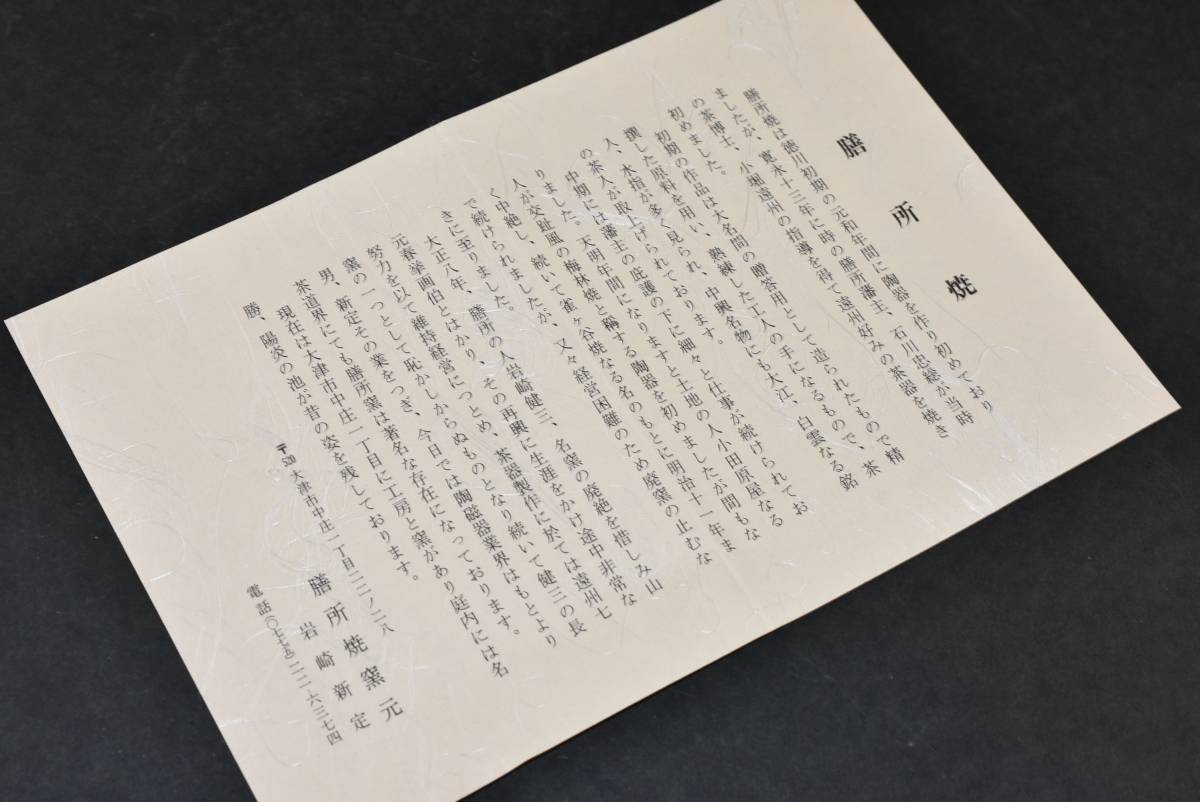 膳所焼
膳所焼は徳川初期の元和年間に陶器を作り初めており
ましたが、寛永十三年に時の膳所藩主、石川忠総が当時
の茶博士、小堀遠州の指導を得て遠州好みの茶器を焼き
初めました。
初期の作品は大名間の贈答用として造られたもので精
撰した原料を用い、熟練した工人の手になるもので、茶
人、水指が多く見られ、中興名物にも大江、白雲なる銘
の茶人が取上げられております。
中期には藩主の庇護の下に細々と仕事が続けられてお
りました。天明年間になりますと土地の人小田原屋なる
人が交趾風の梅林焼と称する陶器を初めましたが間もな
く中絶し、続いて雀ヶ谷焼なる名のもとに明治十一年ま
で続けられましたが、又々経営困難のため廃窯の止むな
きに至りました。
大正八年、膳所の人岩崎健三、名窯の廃絶を惜しみ山
元春挙画伯とはかり、その再興に生涯をかけ途中非常な
努力を以て維持経営につとめ、茶器製作に於ては遠州七
窯の一つとして恥かしからぬものとなり続いて健三の長
男、新定その業をつぎ、今日では陶磁器業界はもとより
茶道界にても膳所窯は著名な存在になっております。
現在は大津市中庄一丁目に工房と窯があり庭内には名
勝、陽炎の池が昔の姿を残しております。
〒520 大津市中庄一丁目二二ノ二八
膳所焼窯元
岩崎新定
電話(〇七七五)二二-六三七四